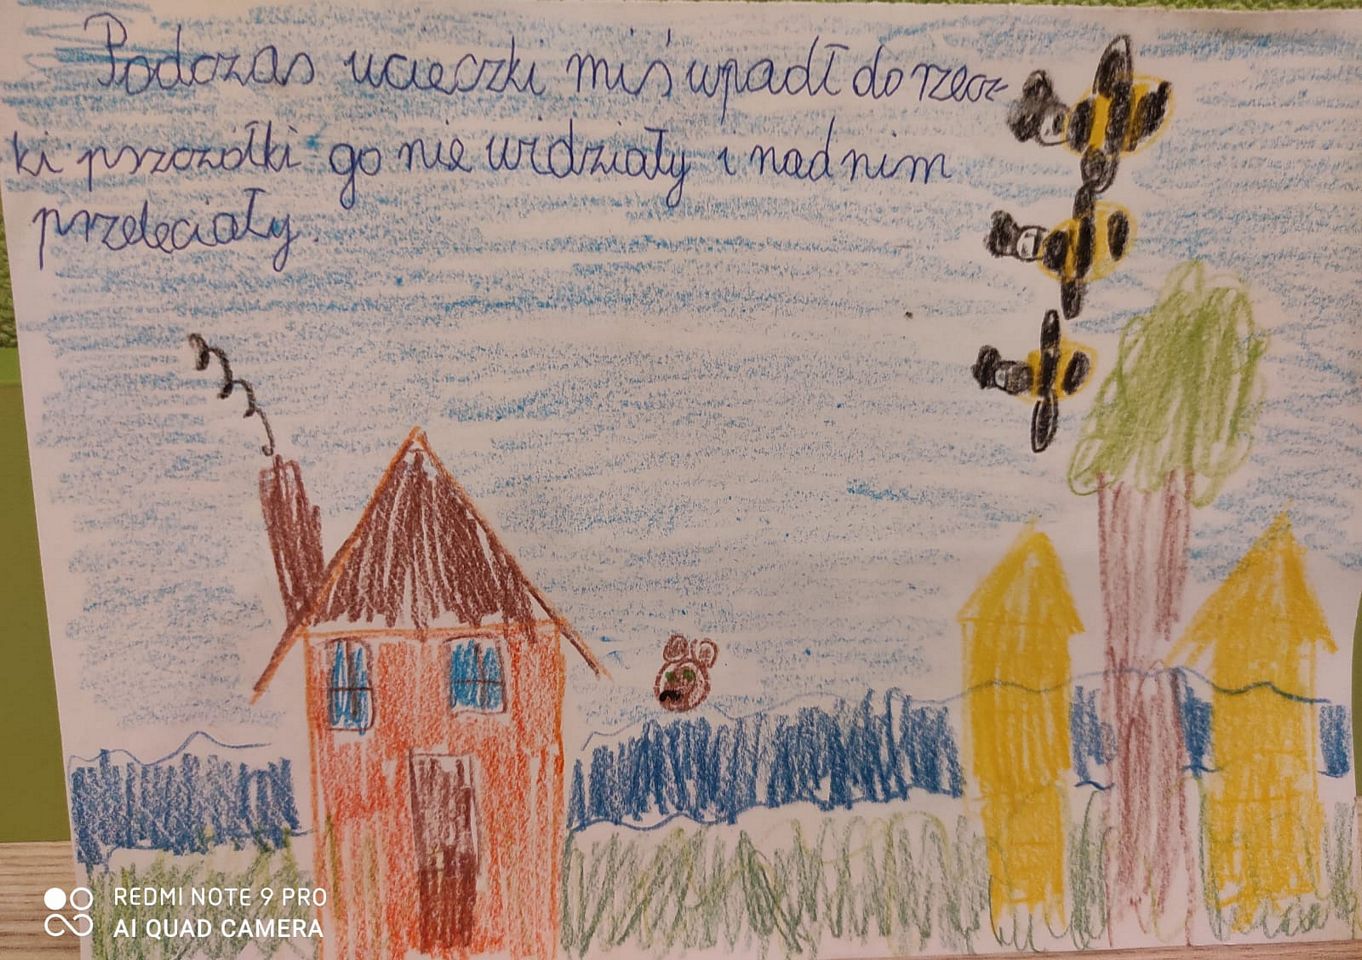 Podczas ucieczki miś wpadł do rzecz-
ki pszczółki go nie widziały i nad nim
przeleciały.
REDMI NOTE 9 PRO
AI QUAD CAMERA